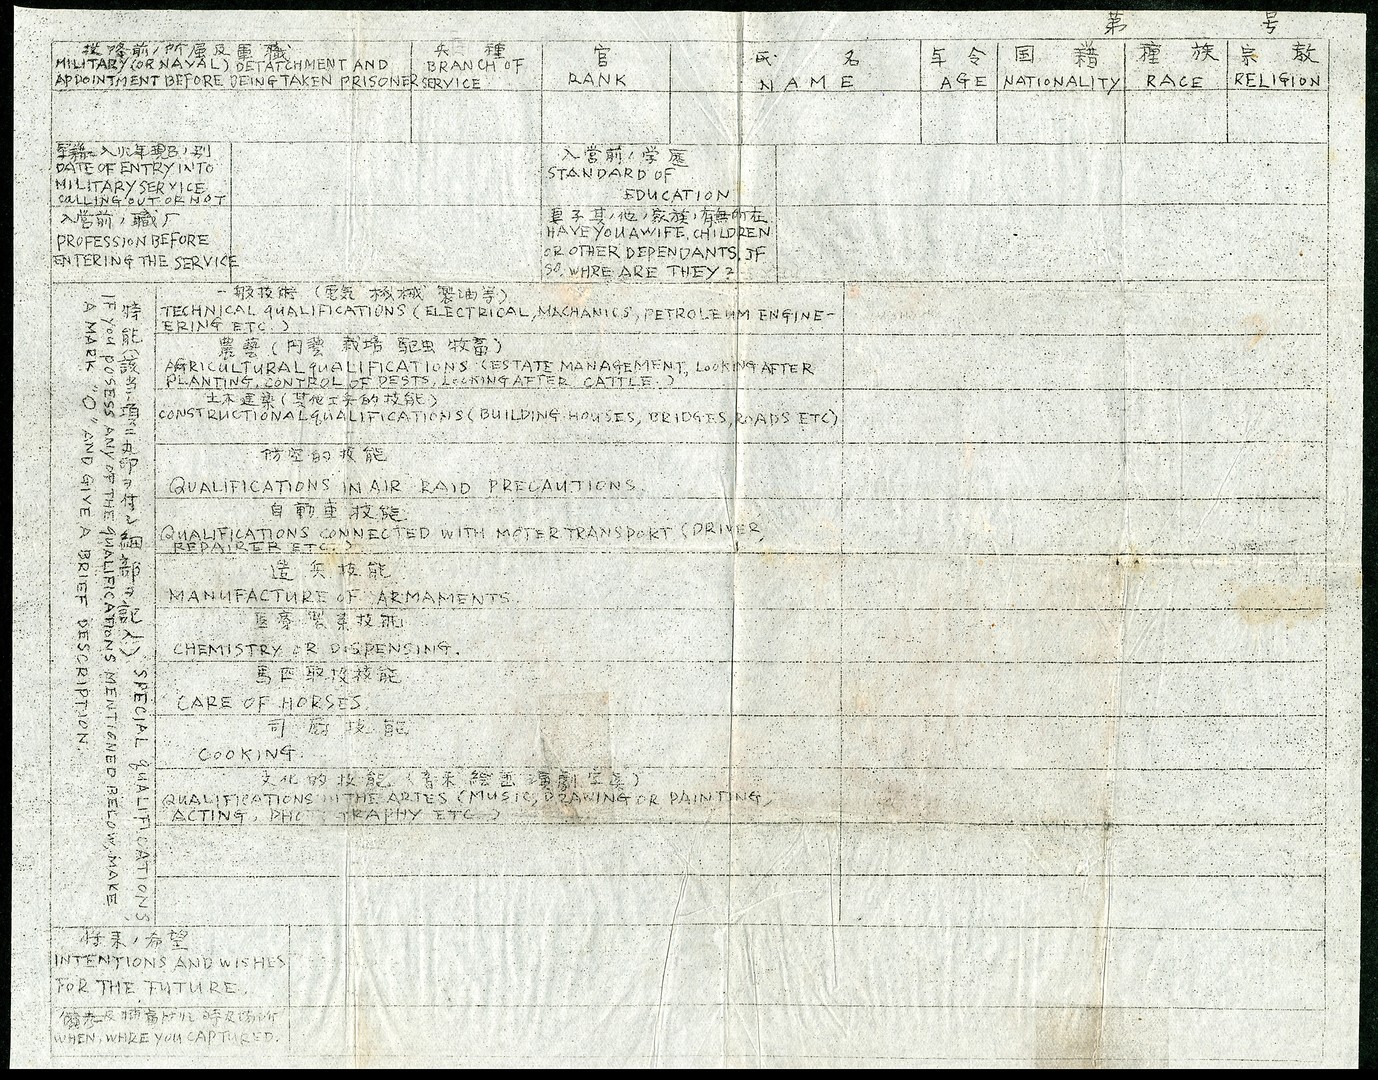 第 号
投降前ノ所属及軍職
MILITARY (OR NAVAL) DETATCHMENT AND
APPOINTMENT BEFORE BEING TAKEN PRISONER
兵種
BRANCH OF
SERVICE
官
RANK
氏名
NAME
年令
AGE
国籍
NATIONALITY
種族
RACE
宗教
RELIGION
DATE OF ENTRY INTO
MILITARY SERVICE
CALLING OUT OR NOT
入営前ノ学歴
STANDARD OF
EDUCATION
入営前ノ職
PROFESSION BEFORE
ENTERING THE SERVICE
妻子其ノ他ノ家族ノ有無所在
HAVE YOU A WIFE, CHILDREN
OR OTHER DEPENDANTS, IF
SO, WHRE ARE THEY?
特能(該当ノ項ニ丸印ヲ付シ細部ヲ記入) SPECIAL QUALIFICATIONS
IF YOU POSESS ANY OF THE QUALIFICATIONS MENTIONED BELOW, MAKE,
A MARK "O" AND GIVE A BRIEF DESCRIPTION.
一般技術 (電気 機械 製油等)
TECHNICAL QUALIFICATIONS (ELECTRICAL, MACHANICS, PETROLEUM ENGINE-
ERING ETC.)
農藝 (園芸 栽培 駆虫 牧畜)
AGRICULTURAL QUALIFICATIONS (ESTATE MANAGEMENT, LOOKING AFTER
PLANTING, CONTROL OF PESTS, LOOKING AFTER CATTLE.)
土木建築 (其他工兵的技能)
CONSTRUCTIONAL QUALIFICATIONS (BUILDING HOUSES, BRIDGES, ROADS ETC)
防空的技能
QUALIFICATIONS IN AIR RAID PRECAUTIONS.
自動車技能
QUALIFICATIONS CONNECTED WITH MOTER TRANSPORT (DRIVER,
REPAIRER ETC.)
造兵技能
MANUFACTURE OF ARMAMENTS.
技能
CHEMISTRY OR DISPENSING.
馬匹取扱技能
CARE OF HORSES.
司厨技能
COOKING.
文化的技能 (音楽 絵画 演劇 写真)
QUALIFICATIONS IN THE ARTES (MUSIC, DRAWING OR PAINTING,
ACTING, PHOTOGRAPHY ETC.)
将来ノ希望
INTENTIONS AND WISHES
FOR THE FUTURE.
WHEN, WHRE YOU CAPTURED.